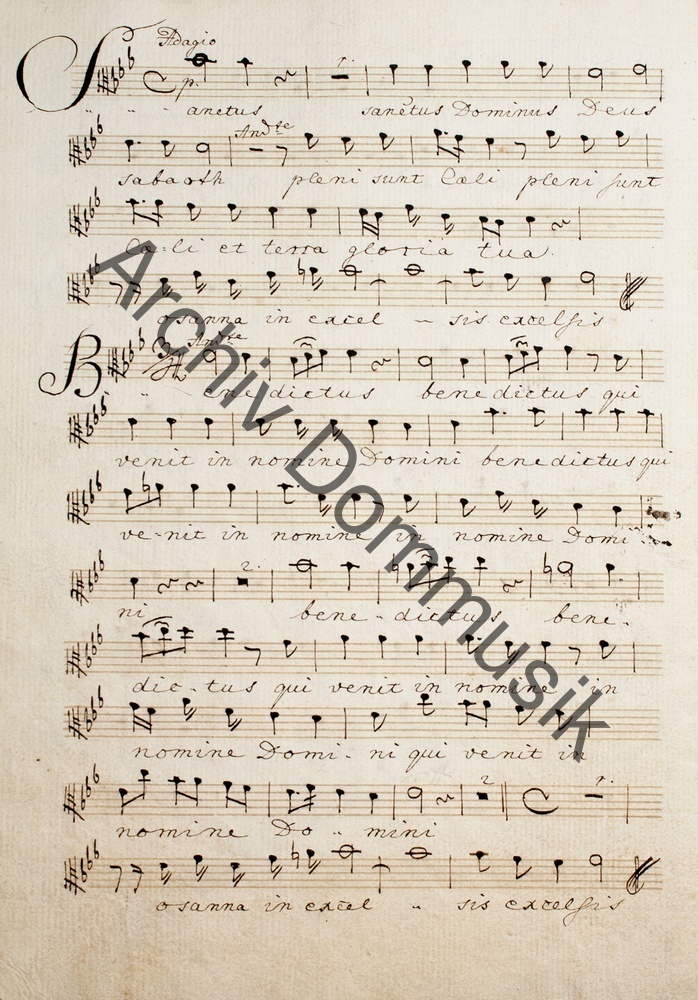 Adagio
p. 1.
Sanctus sanctus Dominus Deus
Andte
sabaoth pleni sunt Cæli pleni sunt
Cæ-li et terra gloria tua.
osanna in excel - sis excelsis
Andte
Benedictus benedictus qui
venit in nomine Domini benedictus qui
ve-nit in nomine in nomine Domi-
2.
ni bene-dictus bene-
dic-tus qui venit in nomine in
nomine Domi-ni qui venit in
2 1.
nomine Do-mini
osanna in excel - sis excelsis
Archiv Dommusik